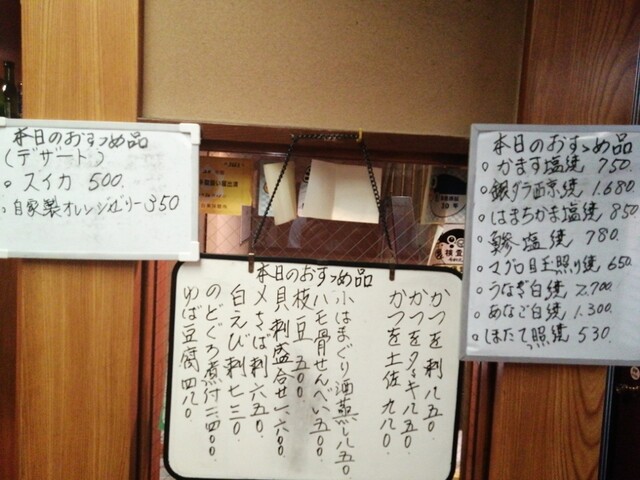 本日のおすゝめ品
(デザート)
。スイカ 500.
。自家製オレンジゼリー350
本日のおすゝめ品
かつを刺 八五〇.
かつをタタキ 八五〇
かつを土佐 九八〇.
小はまぐり酒蒸し 八五〇
ハモ骨せんべい 五〇〇.
枝豆 五〇〇
貝刺盛合せ 一、六〇〇.
〆さば刺 六五〇.
白えび刺 七三〇.
のどぐろ煮付 二、四〇〇.
ゆば豆腐 四八〇.
本日のおすゝめ品
。かます塩焼 750.
。銀ダラ西京焼 1.680.
。はまちかま塩焼 850
。鯵塩焼 780.
。マグロ目玉照り焼 650.
。うなぎ白焼 2.700.
。あなご白焼 1.300.
。ほたて照焼 530.